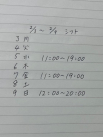 2/3 ~ 2/9 シフト
3 月
4 火
5 水 11:00~19:00
6 木
7 金 11:00~19:00
8 土
9 日 12:00~20:00